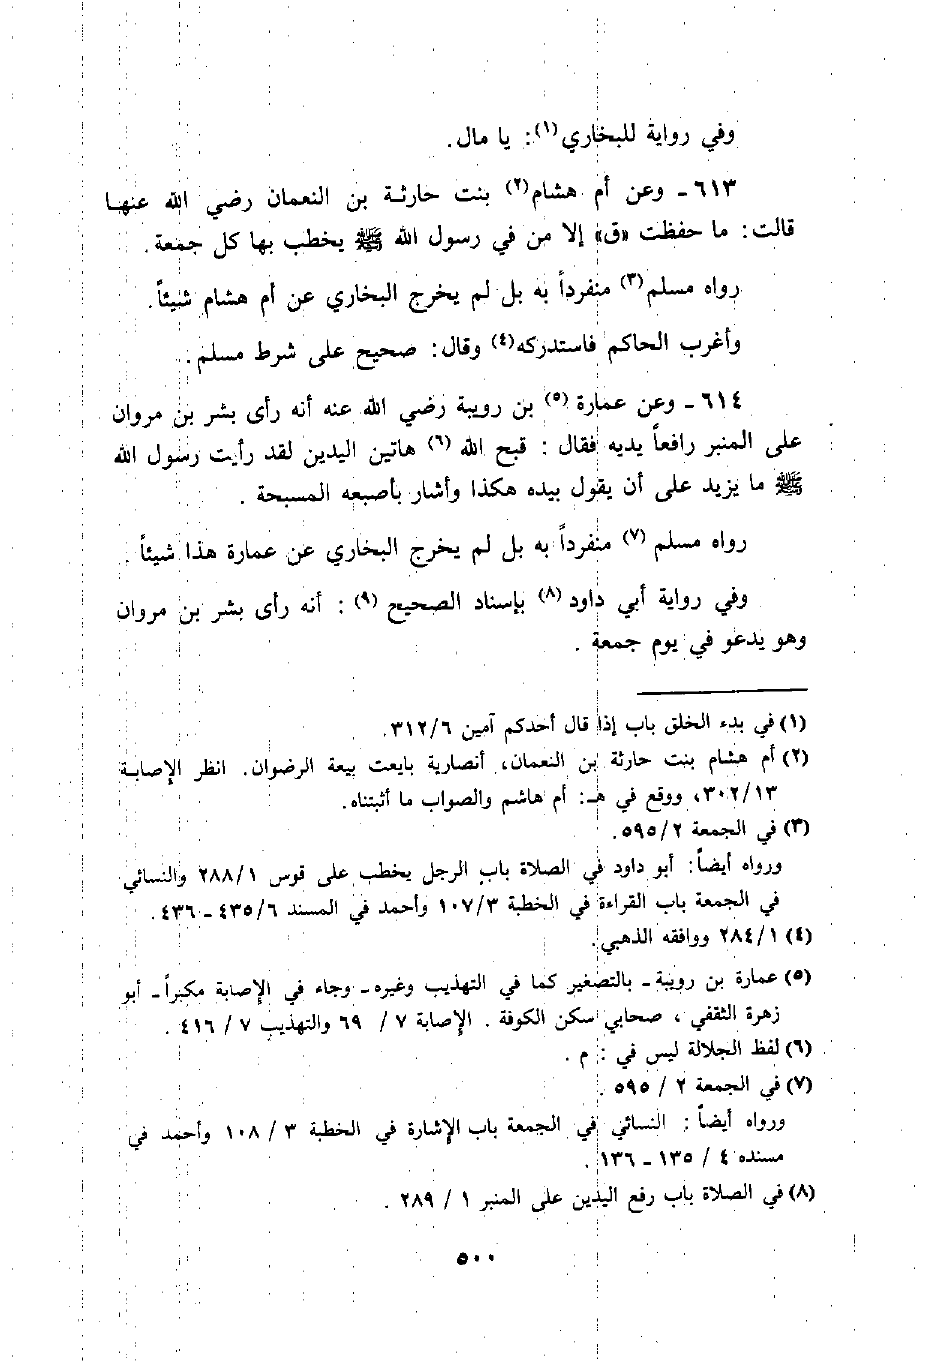 وفي رواية للبخاري(١): يا مال.
٦١٣ ـ وعن أم هشام(٢) بنت حارثة بن النعمان رضي الله عنها
قالت: ما حفظت «ق» إلا من في رسول الله ﷺ يخطب بها كل جمعة.
رواه مسلم(٣) منفرداً به بل لم يخرج البخاري عن أم هشام شيئاً.
وأغرب الحاكم فاستدركه(٤) وقال: صحيح على شرط مسلم.
٦١٤ ـ وعن عمارة(٥) بن رويبة رضي الله عنه أنه رأى بشر بن مروان
على المنبر رافعاً يديه فقال : قبح الله (٦) هاتين اليدين لقد رأيت رسول الله
ﷺ ما يزيد على أن يقول بيده هكذا وأشار بأصبعه المسبحة .
رواه مسلم (٧) منفرداً به بل لم يخرج البخاري عن عمارة هذا شيئاً .
وفي رواية أبي داود (٨) بإسناد الصحيح (٩) : أنه رأى بشر بن مروان
وهو يدعو في يوم جمعة .
(١) في بدء الخلق باب إذا قال أحدكم آمين ٣١٢/٦.
(٢) أم هشام بنت حارثة بن النعمان، أنصارية بايعت بيعة الرضوان. انظر الإصابة
٣٠٢/١٣، ووقع في هـ: أم هاشم والصواب ما أثبتناه.
(٣) في الجمعة ٥٩٥/٢.
ورواه أيضاً: أبو داود في الصلاة باب الرجل يخطب على قوس ٢٨٨/١ والنسائي
في الجمعة باب القراءة في الخطبة ١٠٧/٣ وأحمد في المسند ٤٣٥/٦ ـ ٤٣٦.
(٤) ٢٨٤/١ ووافقه الذهبي.
(٥) عمارة بن رويبة ـ بالتصغير كما في التهذيب وغيره ـ وجاء في الإصابة مكبراً ـ أبو
زهرة الثقفي ، صحابي سكن الكوفة . الإصابة ٧ / ٦٩ والتهذيب ٧ / ٤١٦ .
(٦) لفظ الجلالة ليس في : م .
(٧) في الجمعة ٢ / ٥٩٥ .
ورواه أيضاً : النسائي في الجمعة باب الإشارة في الخطبة ٣ / ١٠٨ وأحمد في
مسنده ٤ / ١٣٥ ـ ١٣٦ .
(٨) في الصلاة باب رفع اليدين على المنبر ١ / ٢٨٩ .
٥٠٠